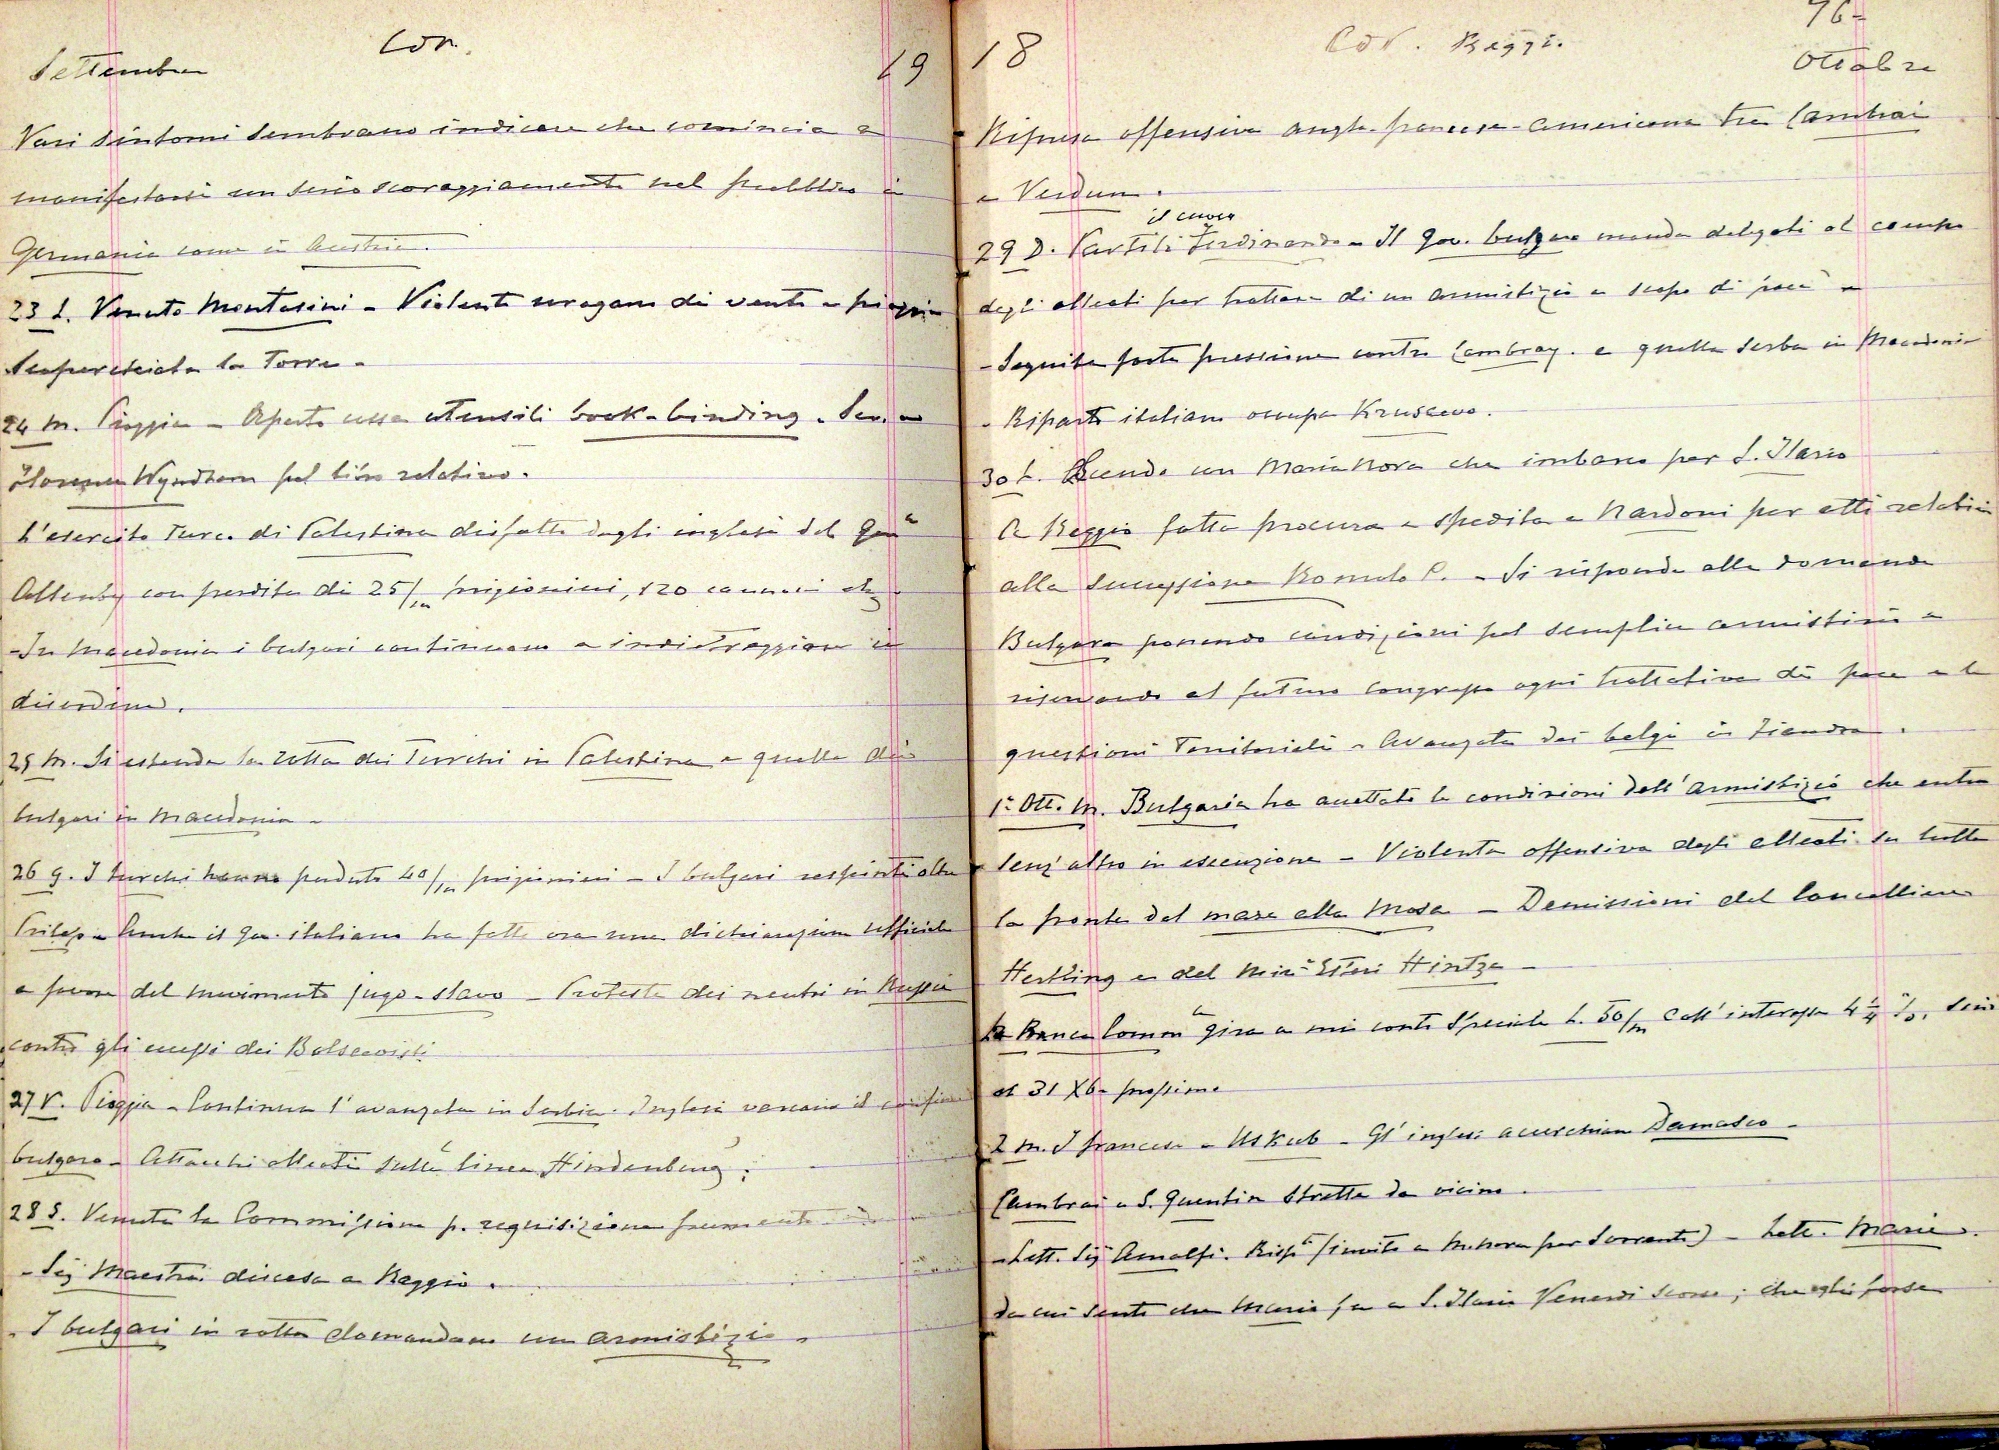 Settembre Cor. 19
Vari sintomi sembrano indicare che comincia a
manifestarsi un serio scoraggiamento nel pubblico in
Germania come in Austria.
23 L. Venuto Montesini - Violenti uragani di vento e pioggia
scoperchiata la Torre -
24 M. Pioggia - Aperta cassa utensili book-binding -
Florence Wyndham pel libro relativo.
L'esercito Turco di Palestina disfatto dagli inglesi del Genˡᵉ
Allenby con perdita di 25/m prigionieri, 120 cannoni etc.
- In Macedonia i bulgari continuano a indietreggiare in
disordine.
25 M. Si estende la rotta dei Turchi in Palestina e quella dei
bulgari in Macedonia -
26 G. I turchi hanno perduto 40/m prigionieri - I bulgari respinti oltre
Prilep - Anche il gov. italiano ha fatto ora una dichiarazione ufficiale
a favore del movimento jugo-slavo - Proteste dei neutri in Russia
contro gli eccessi dei Bolscevisti
27 V. Pioggia - Continua l'avanzata in Serbia. Inglesi varcano il confine
bulgaro - Attacchi alleati sulla linea Hindenburg.
28 S. Venuta la Commissione p. requisizione frumento
- Sig Maestri discesa a Reggio.
- I bulgari in rotta domandano un armistizio -
18 Cor. Reggi. 76-
Ottobre
- Ripresa offensiva anglo-francese-americana tra Cambrai
e Verdun.
29 D. Partiti il cuoco Ferdinando - Il gov. bulgaro manda delegati al campo
degli alleati per trattare di un armistizio a scopo di pace -
- Seguita forte pressione contro Cambray. e quella serba in Macedonia
- Riparto italiano occupa Kruscevo.
30 L. Scendo con Maria Nora che imbarco per S. Ilario
A Reggio fatta procura e spedita a Nardoni per atti relativi
alla successione Romolo P. - Si risponde alla domanda
Bulgara ponendo condizioni pel semplice armistizio e
riservando al futuro congresso ogni trattativa di pace e le
questioni Territoriali - Avanzata dei belgi in Fiandra.
1º Ott. M. Bulgaria ha accettato le condizioni dell'armistizio che entra
senz'altro in esecuzione - Violenta offensiva degli alleati su tutta
la fronte dal mare alla Mosa - Demissioni del Cancelliere
Hertling e del Minº Esteri Hintze -
La Banca Commˡᵉ gira a mio conto speciale L. 50/m coll'interesse 4 1/4 %. sino
al 31 Xbre prossimo
2 M. I francesi a Uskub - Gl'inglesi accerchiano Damasco -
Cambrai e S. Quentin strette da vicino.
- Lett. Sig Amalfi. Rispᵗᵃ (invito a M. Nora per Sorrento) - Lett. Maria
da cui sento che Mario fu a S. Ilario Venerdi scorso; che egli forse